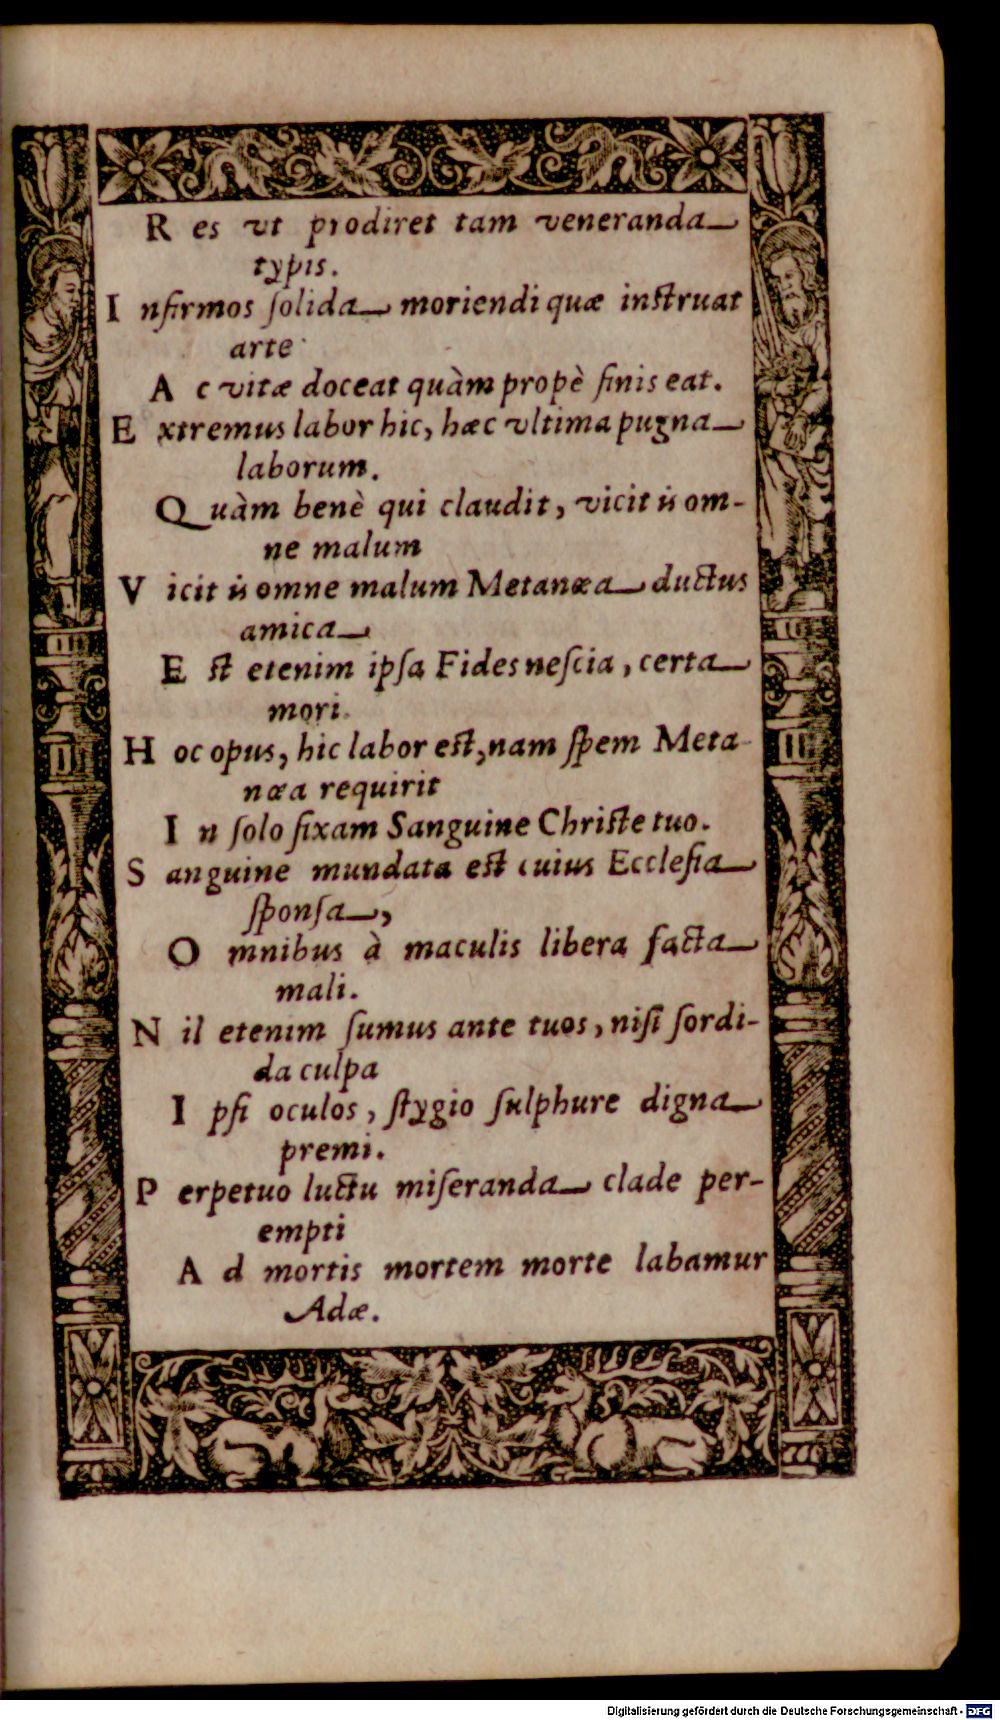 R es vt prodiret tam veneranda
typis.
I nfirmos ſolida moriendi quæ inſtruat
arte
A c vitæ doceat quàm propè finis eat.
E xtremus labor hic, hæc vltima pugna
laborum.
Q uàm benè qui claudit, vicit is om-
ne malum
V icit is omne malum Metanœa ductus
amica
E ſt etenim ipſa Fides neſcia, certa
mori.
H oc opus, hic labor eſt, nam ſpem Meta-
nœa requirit
I n ſolo fixam Sanguine Chriſte tuo.
S anguine mundata eſt cuius Eccleſia
ſponſa,
O mnibus à maculis libera facta
mali.
N il etenim ſumus ante tuos, niſi ſordi-
da culpa
I pſi oculos, ſtygio ſulphure digna
premi.
P erpetuo luctu miſeranda clade per-
empti
A d mortis mortem morte labamur
Adæ.
Digitalisierung gefördert durch die Deutsche Forschungsgemeinschaft - DFG